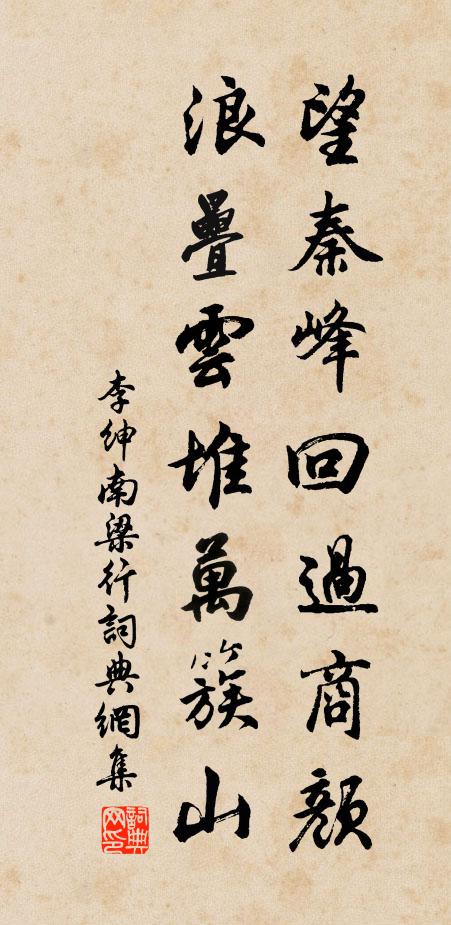 望秦峰回過商顏
浪疊雲堆萬簇山
李紳南梁行詞典網集
詞典網印